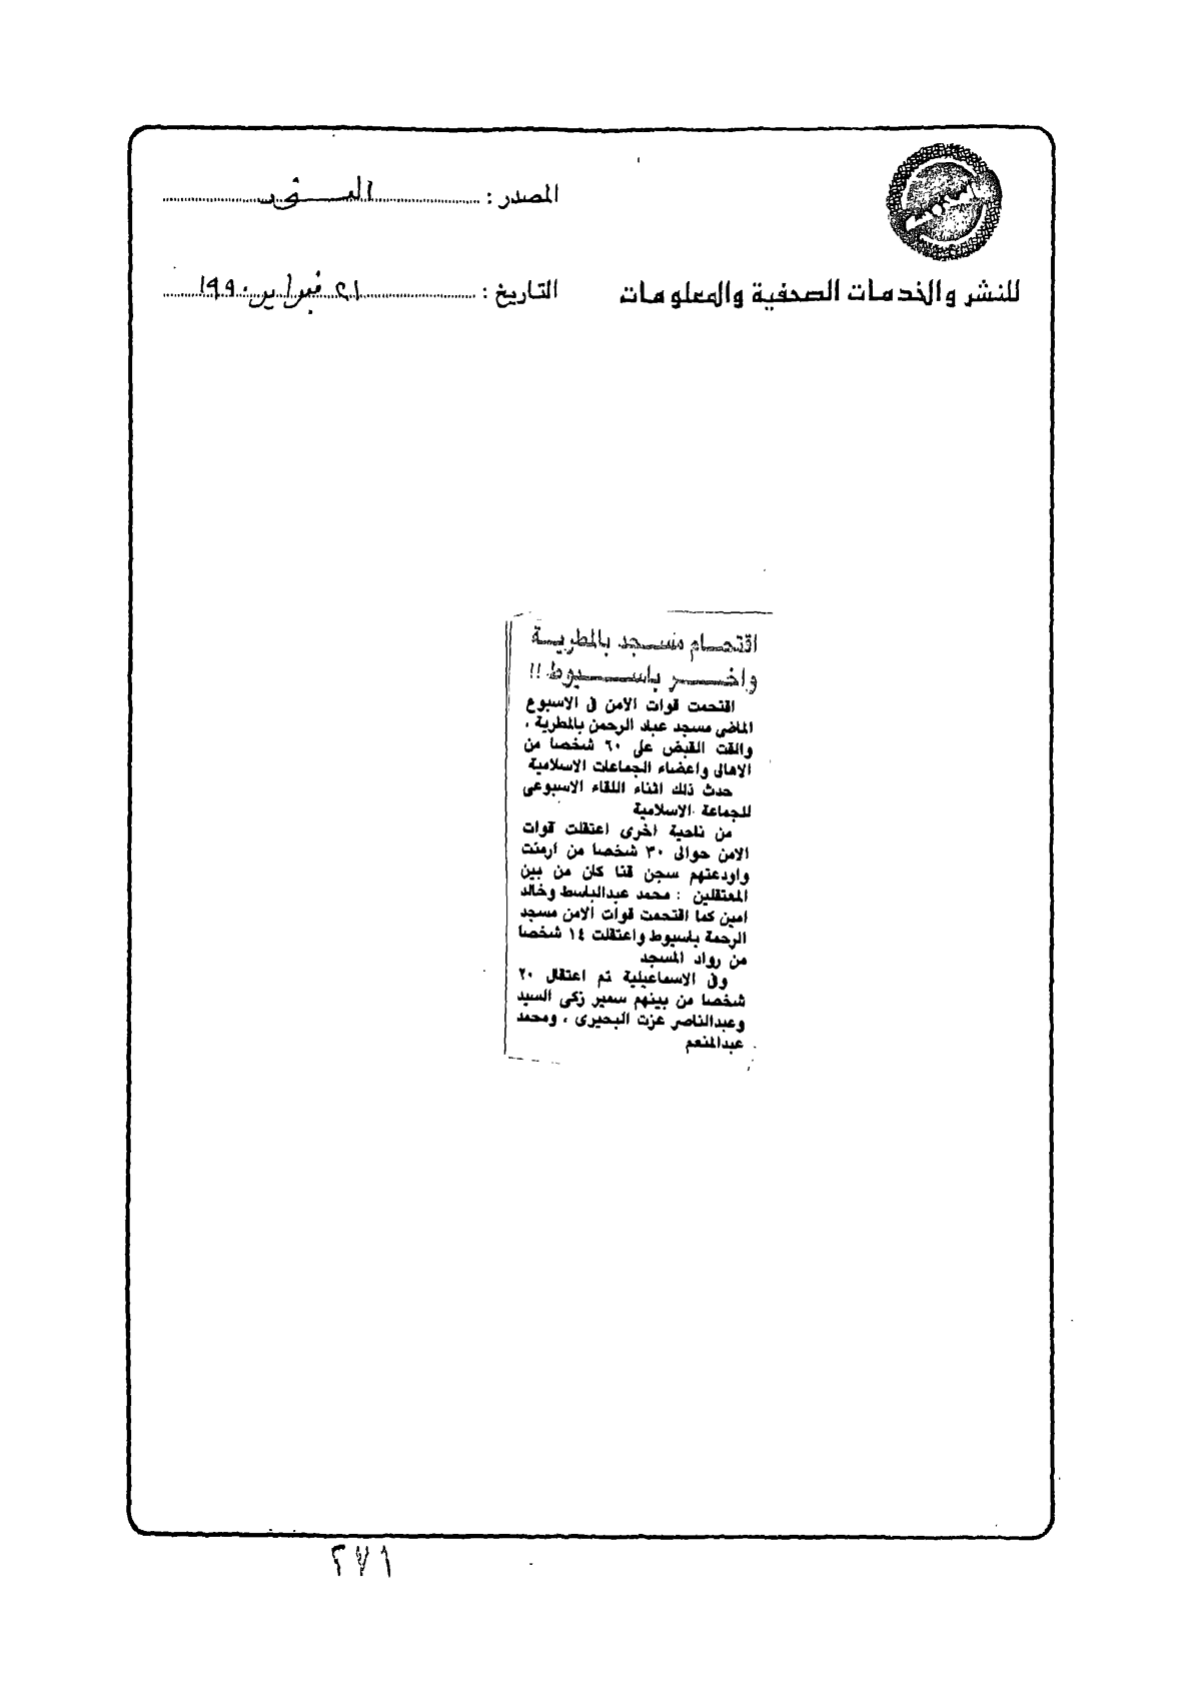 المصدر :
للنشر والخدمات الصحفية والمعلومات
التاريخ : ٢١ فبراير ١٩٩٠
اقتحـام مسـجد بالمطريـة
واخـر باسـيوط !!
اقتحمت قوات الامن فى الاسبوع
الماضى مسجد عباد الرحمن بالمطرية ،
والقت القبض على ٦٠ شخصا من
الاهالى واعضاء الجماعات الاسلامية
حدث ذلك اثناء اللقاء الاسبوعى
للجماعة الاسلامية
من ناحية اخرى اعتقلت قوات
الامن حوالى ٣٠ شخصا من ارمنت
واودعتهم سجن قنا كان من بين
المعتقلين : محمد عبدالباسط وخالد
امين كما اقتحمت قوات الامن مسجد
الرحمة باسيوط واعتقلت ١٤ شخصا
من رواد المسجد
وفى الاسماعيلية تم اعتقال ٢٠
شخصا من بينهم سمير زكى السيد
وعبدالناصر عزت البحيرى ، ومحمد
عبدالمنعم
٢٧١